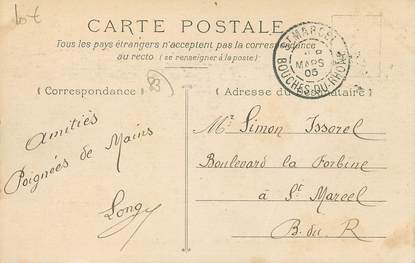 lot
CARTE POSTALE
Tous les pays étrangers n'acceptent pas la correspondance
au recto (se renseigner à la poste)
ST MARCEL
MARS
05
BOUCHES-DU-RHONE
83
(Correspondance)
Adresse du Destinataire)
Amitiés
Poignées de Mains
Longy
Mr. Simon Issorel
Boulevard la Forbine
à St Marcel
B. du R